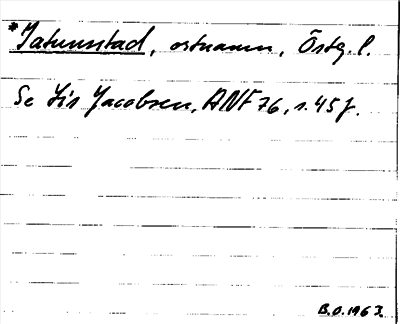 *Tatunnstad, ortnamn, Östg. l.
Se Lis Jacobsen, ANF 76, s. 45 f.
B.O. 1963.